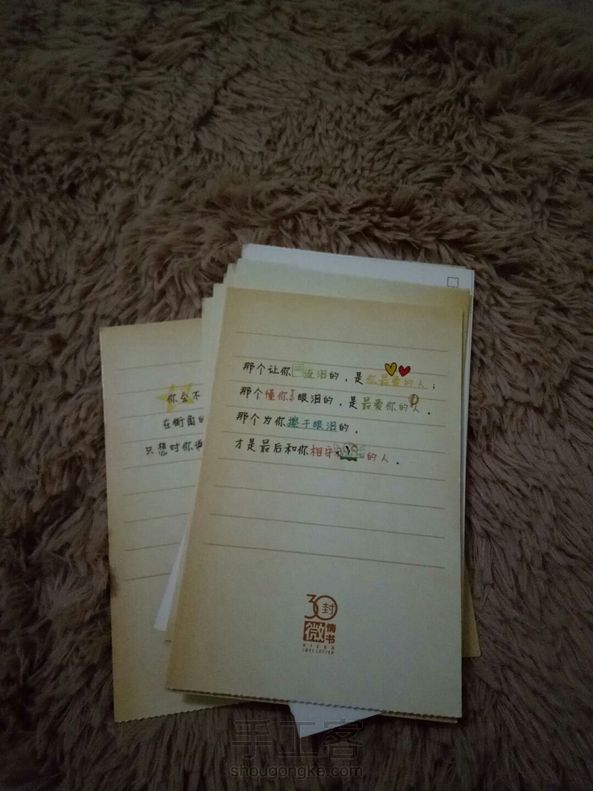 那个让你流泪的，是你最爱的人；
那个懂你眼泪的，是最爱你的人．
那个为你擦干眼泪的，
才是最后和你相守的人．
你会不
在街角的
只想对你说
30封
微情书
手工客
shougongke.com